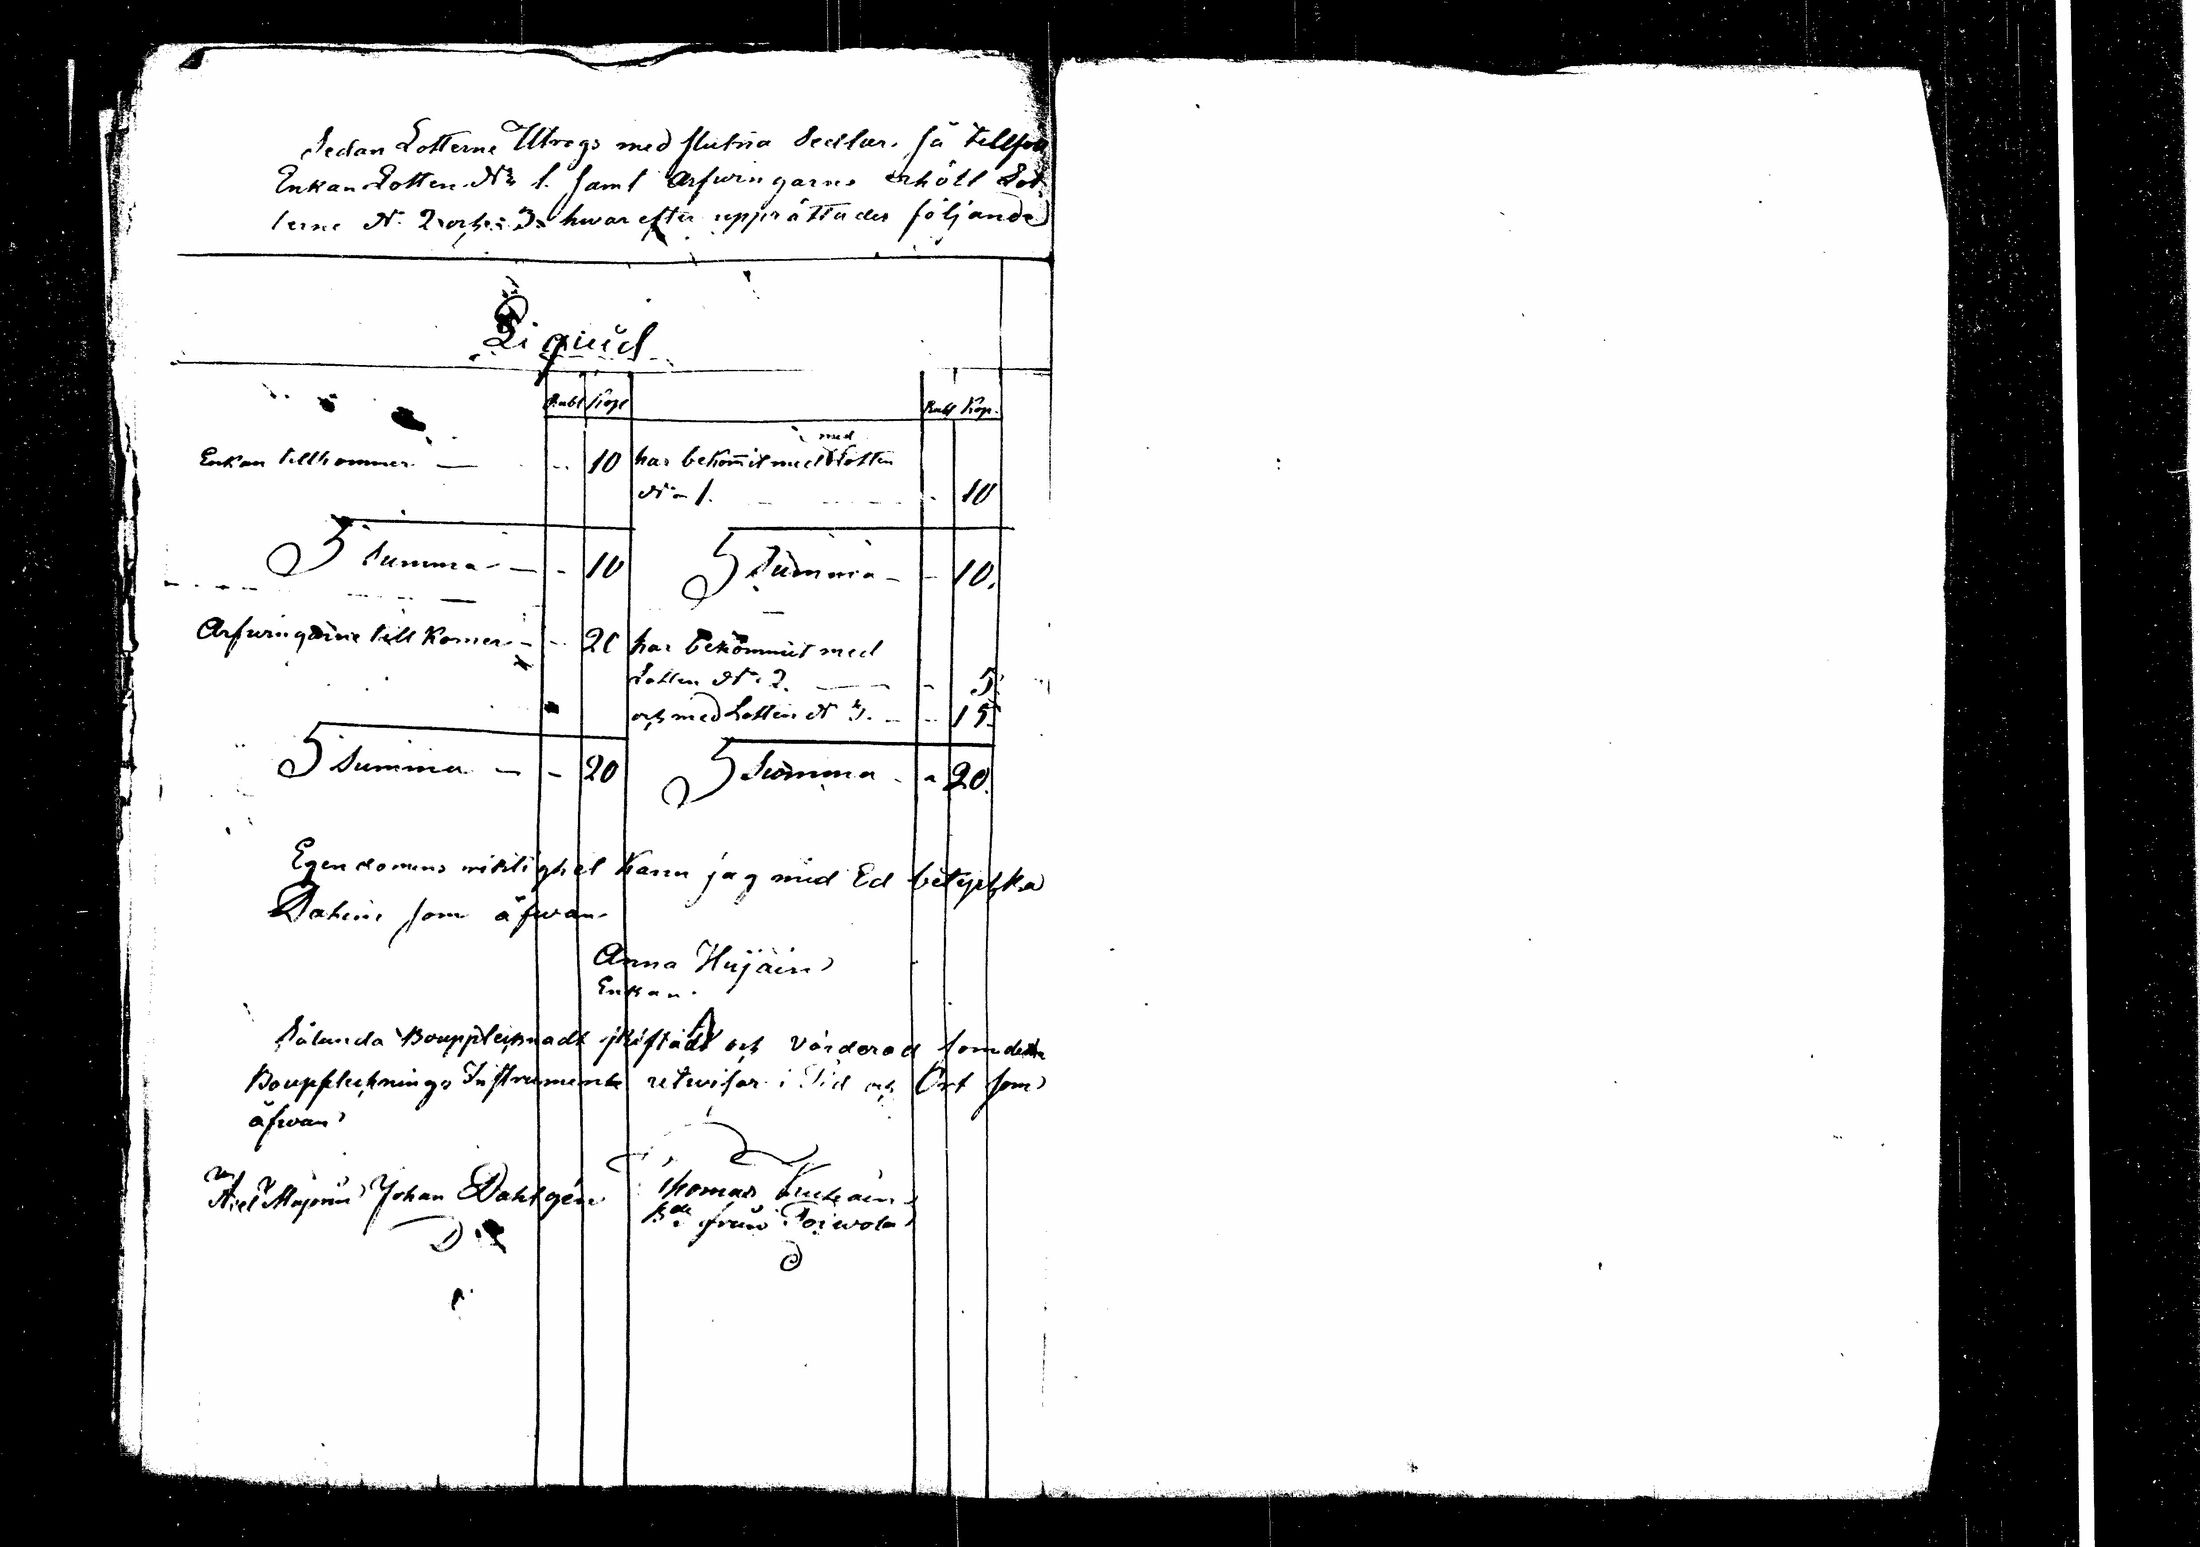 Sedan Lotterne Utrogs med slutna Sedlar. så tillföll
Enkan Lotten N:o 1. samt Arfwingarne erhöll Lot
terne N. 2. och 3. hwar efter upprättades följande
Liquid
Rubl Kop
Rubl Kop.
Enkan tillkommer — - 10
har bekom̅it med Lotten
N:o 1. - 10
Summa — - 10
Summa - - 10.
Arfwingarne till komer - - 20
har bekommit med
Lotten N. 2. — - 5.
och med Lotten N 3. - - 15
Summa — - 20
Summa - - 20.
Egendomens riktighet kann jag med Ed betyscka
Datum som åfwan
Anna Hujäin
Enkan.
Sålunda Bouppteknadt skiftadt och värderad som detta
Bouppteknings Instrument utwisar i Tid och Ort som
åfwan
Johan Dahlgén
Thomas
från Toiwola